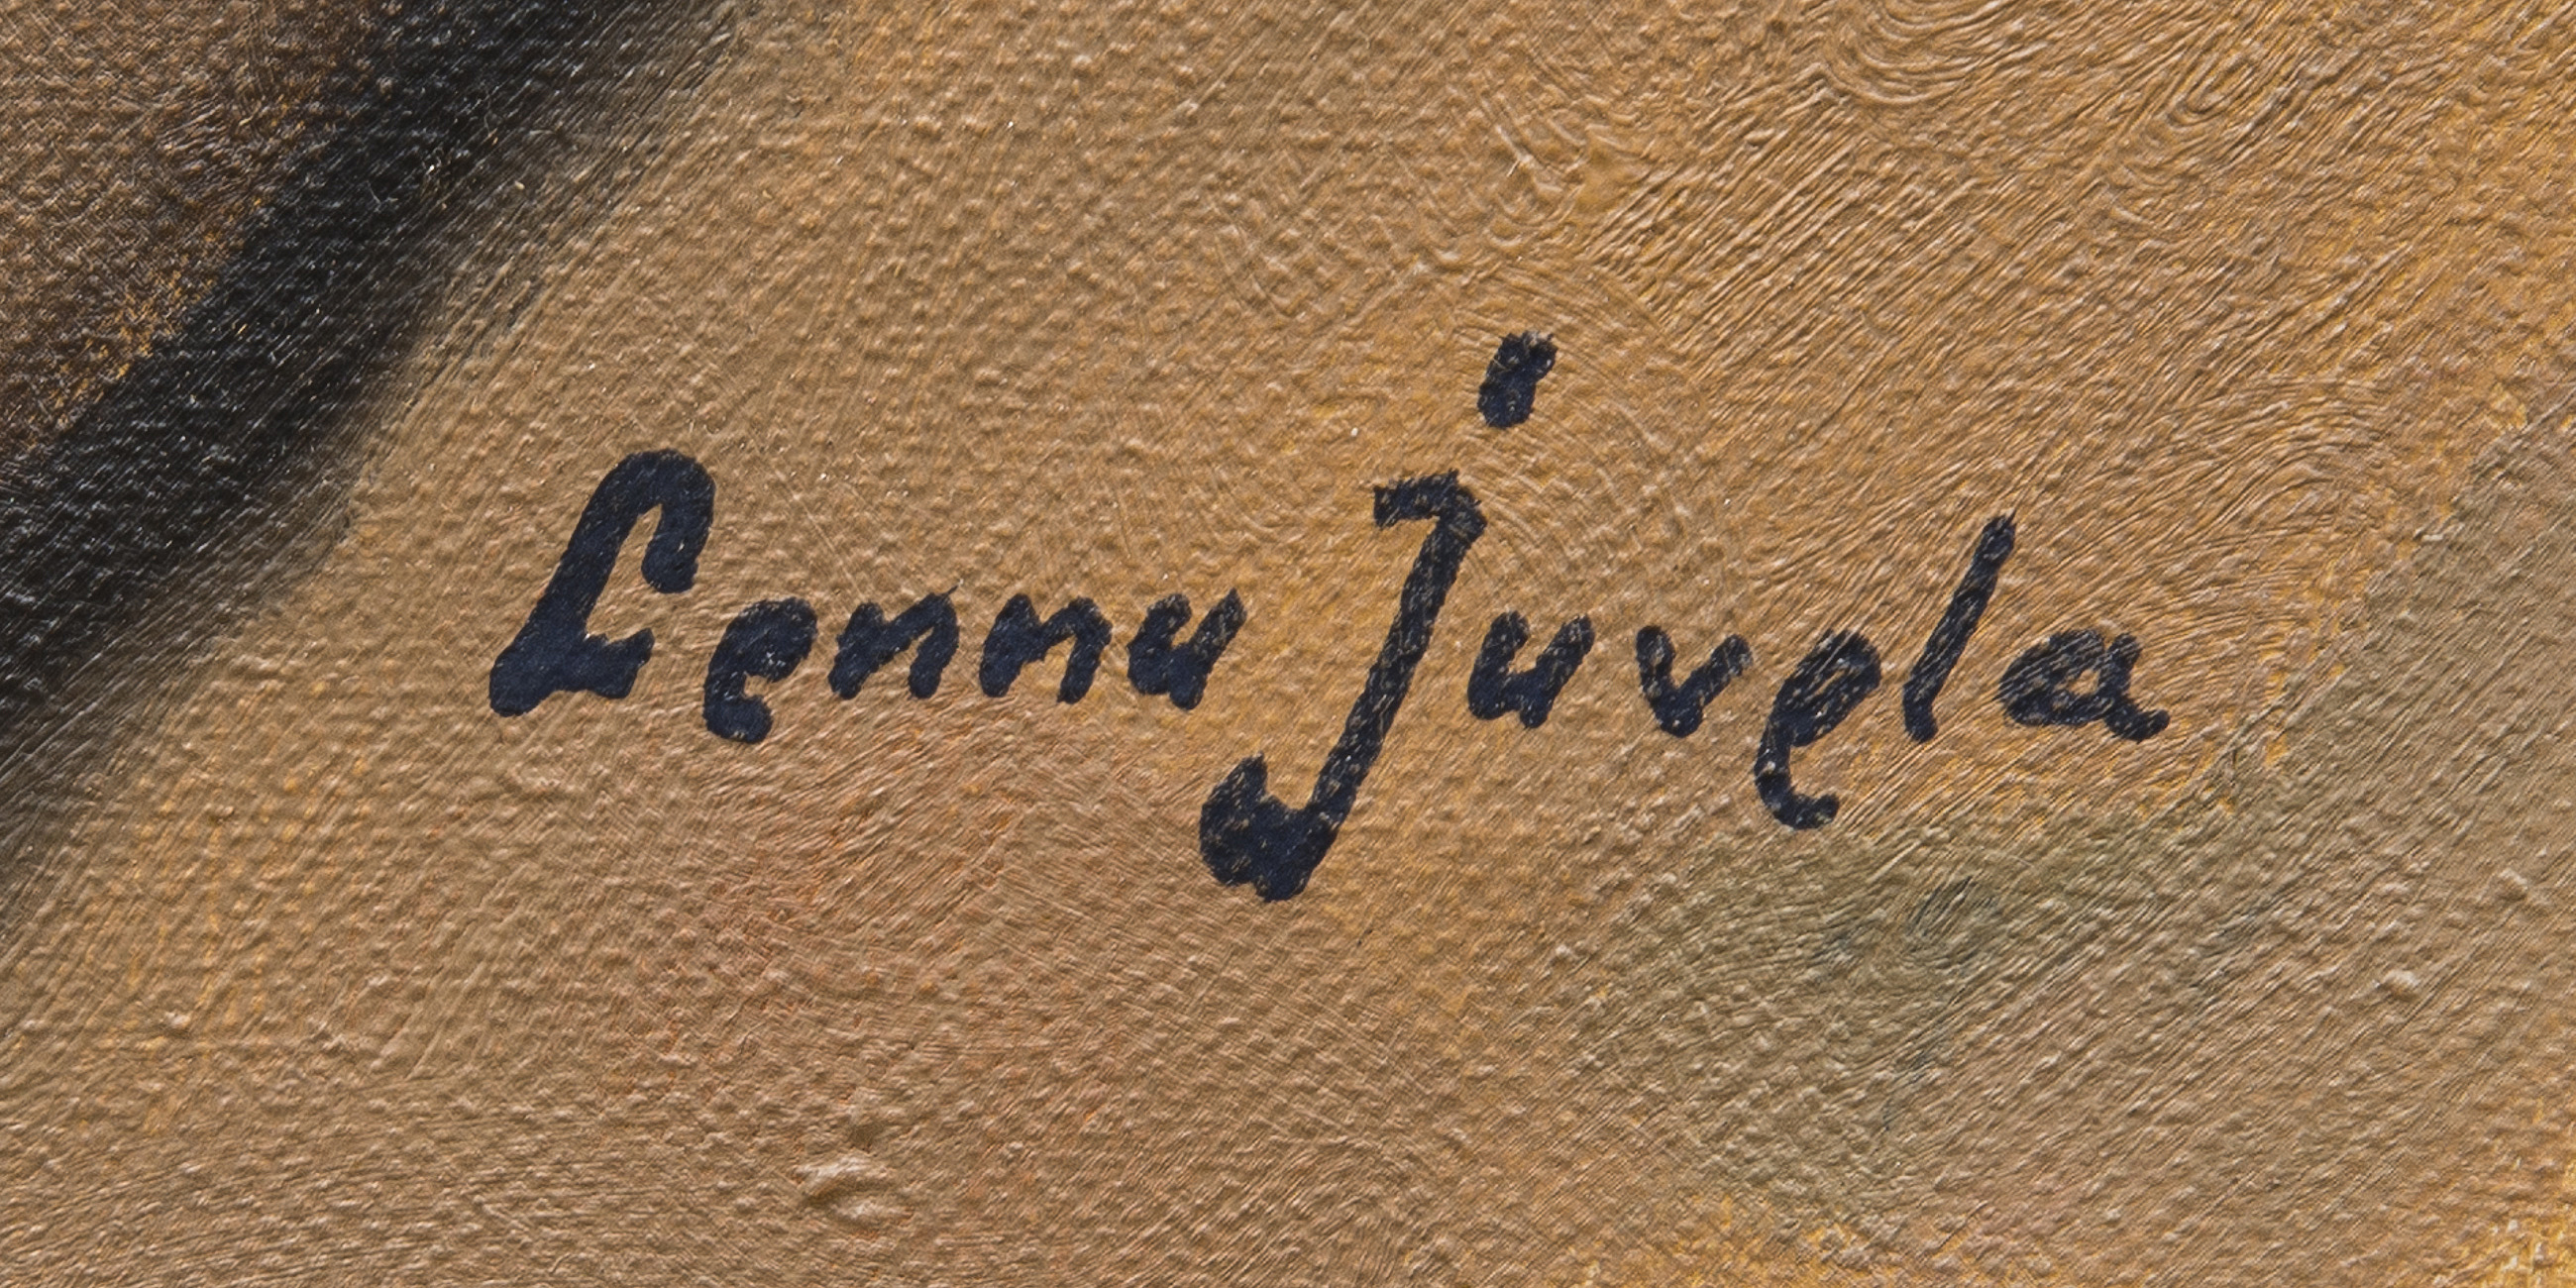 Lennu Juvela